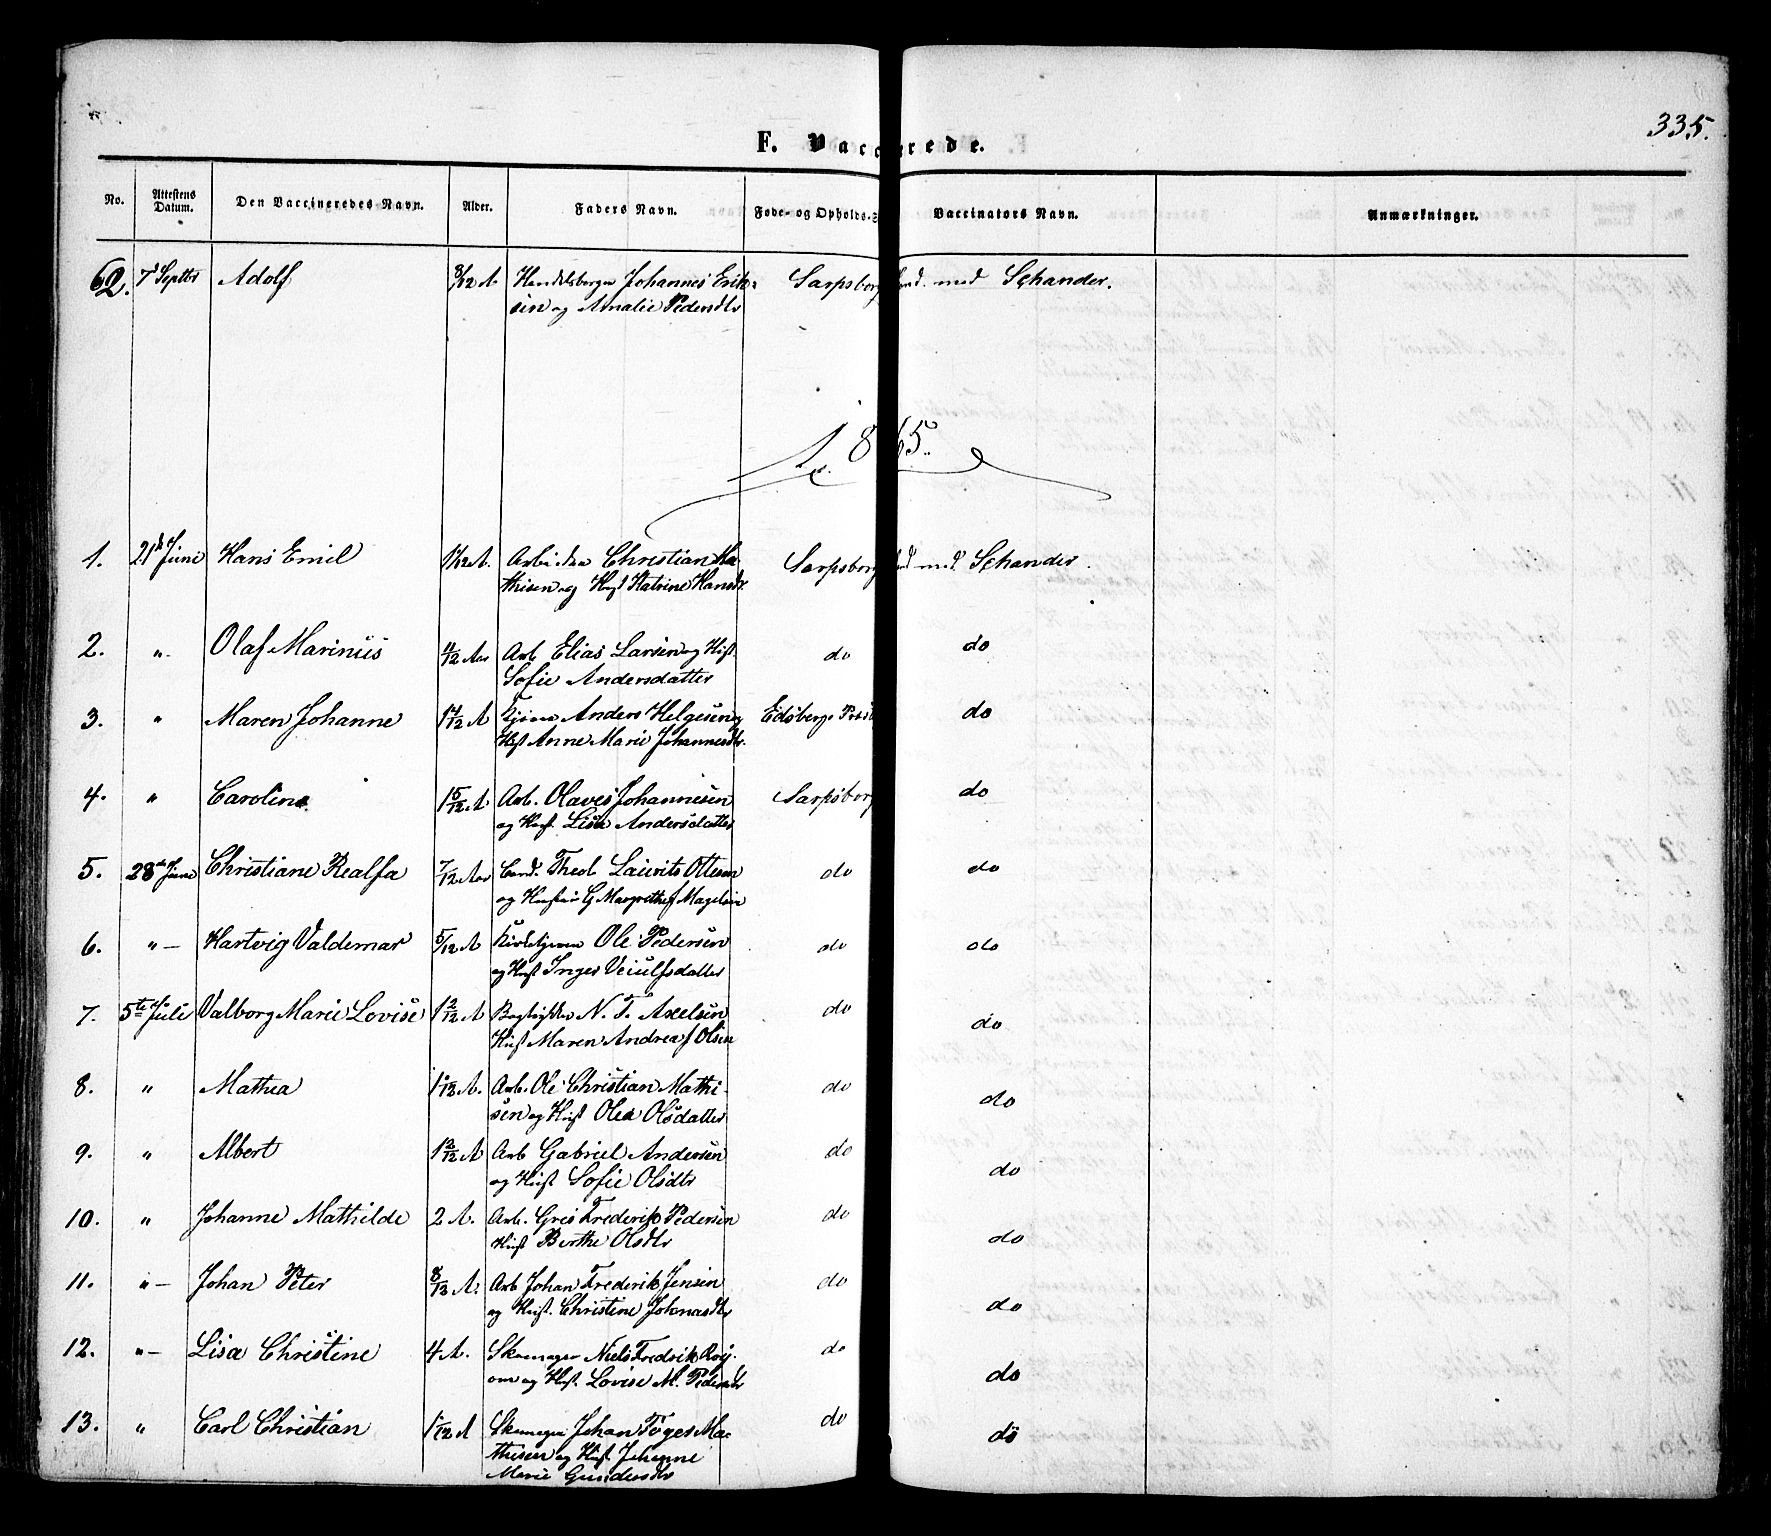 335.
F. Vaccinerede.
No. Attestens Datum. Den Vaccineredes Navn. Alder. Faders Navn. Føde- og Opholds-S Vaccinators Navn. Anmærkninger.
62. 7 Septbr Adolf 8/12 A Handelsborger Johannes Erik- Sarpsborg cand. med Schander.
sen og Amalie Pedersdtr
1865.
1. 21 Juni Hans Emil Arbeider Christian Ma- Sarpsborg cand med. Schander.
thisen og Hust Katrine Hansdtr
2. " Olaf Marinus 4/12 Aar Arb Elias Larsen og Hust. do do
Sofie Andersdatter
3. " Maren Johanne 1 4/12 A Anders Helgesen og Edsbergs Præst do
Hust Anne Marie Johannesdtr.
4. " Caroline 1 5/12 A Arb. Olaves Johannesen Sarpsborg do
og Hust. Lisa Andersdatter
5. 28 Juni Christiane Realfa 7/12 Aar Cand. Theol Laurits Ottesen do do
og Hustru G Margrethe f Magelsen
6. " Hartvig Valdemar 5/12 A Ole Pedersen do do
og Hust Inger Veiulfsdatter
7. 5te Juli Valborg Marie Lovise 1 2/12 A N. T. Axelsen do do
Hust Maren Andrea f Olsen
8. " Mathea Arb. Ole Christian Mathi- do do
sen og Hust Olea Olsdatter
9. " Albert 1 2/12 A Arb Gabriel Andersen do do
og Hust Sofie Olsdtr
10. " Johanne Mathilde 2 A. Arb. Frederik Pedersen do do
Hust Berthe Olsdtr
11. " Johan Peter 8/12 A. Arb Johan Frederik Jensen do do
og Hust. Christine Johnasdtr
12. " Lisa Christine 4 A. Skomager Niels Fredrik do do
og Hust. Lovise M. Pedersdtr
13. " Carl Christian Skomager Johan Ma- do do
thisen og Hust Johanne
Marie Gundersdtr